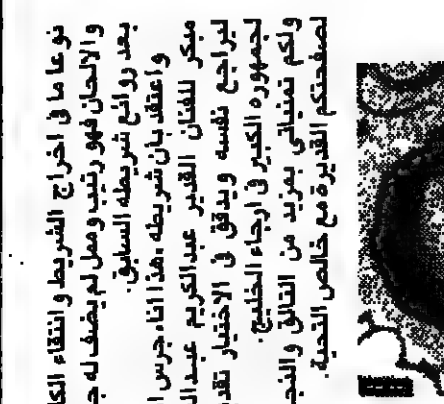 نوعا ما في اخراج الشريط وانتقاء
والالحان فهو رتيب وممل لم يضف له
بعد روائع شريطه السابق.
واعتقد بأن شريطه هذا اناء جرس
مبكر للفنان القدير عبدالكريم
ليراجع نفسه ويدقق في الاختيار
لجمهوره الكبير في ارجاء الخليج.
ولكم تمنياتي بمزيد من التألق
لصفحتكم القديرة مع خالص التحية.